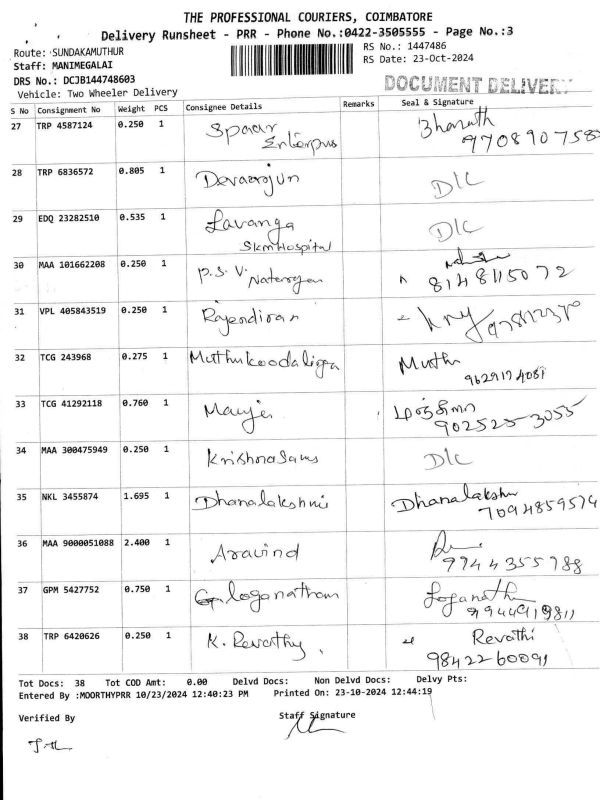 THE PROFESSIONAL COURIERS, COIMBATORE
Delivery Runsheet - PRR - Phone No.:0422-3505555 - Page No.:3
Route: SUNDAKAMUTHUR
RS No.: 1447486
Staff: MANIMEGALAI
RS Date: 23-Oct-2024
DRS No.: DCJB144748603
DOCUMENT DELIVERY
Vehicle: Two Wheeler Delivery
S No Consignment No Weight PCS Consignee Details Remarks Seal & Signature
27 TRP 4587124 0.250 1 Spaar Bharath
Enterprises 9708907583
28 TRP 6836572 0.805 1 Devaarjun D/C
29 EDQ 23282510 0.535 1 Lavanga D/C
SKM Hospital
30 MAA 101662208 0.250 1 P.S.V. Natarajan
8148115072
31 VPL 405843519 0.250 1 Rajendiran
32 TCG 243968 0.275 1 Muthukoodalinga Muthu
9629174081
33 TCG 41292118 0.760 1
902525 3055
34 MAA 300475949 0.250 1 Krishnasamy D/C
35 NKL 3455874 1.695 1 Dhanalakshmi Dhanalakshmi
7094859574
36 MAA 9000051088 2.400 1 Aravind
9944355788
37 GPM 5427752 0.750 1 loganathan Loganathan
9944919811
38 TRP 6420626 0.250 1 K. Revathy. Revathi
9842260091
Tot Docs: 38 Tot COD Amt: 0.00 Delvd Docs: Non Delvd Docs: Delvy Pts:
Entered By :MOORTHYPRR 10/23/2024 12:40:23 PM Printed On: 23-10-2024 12:44:19
Verified By Staff Signature